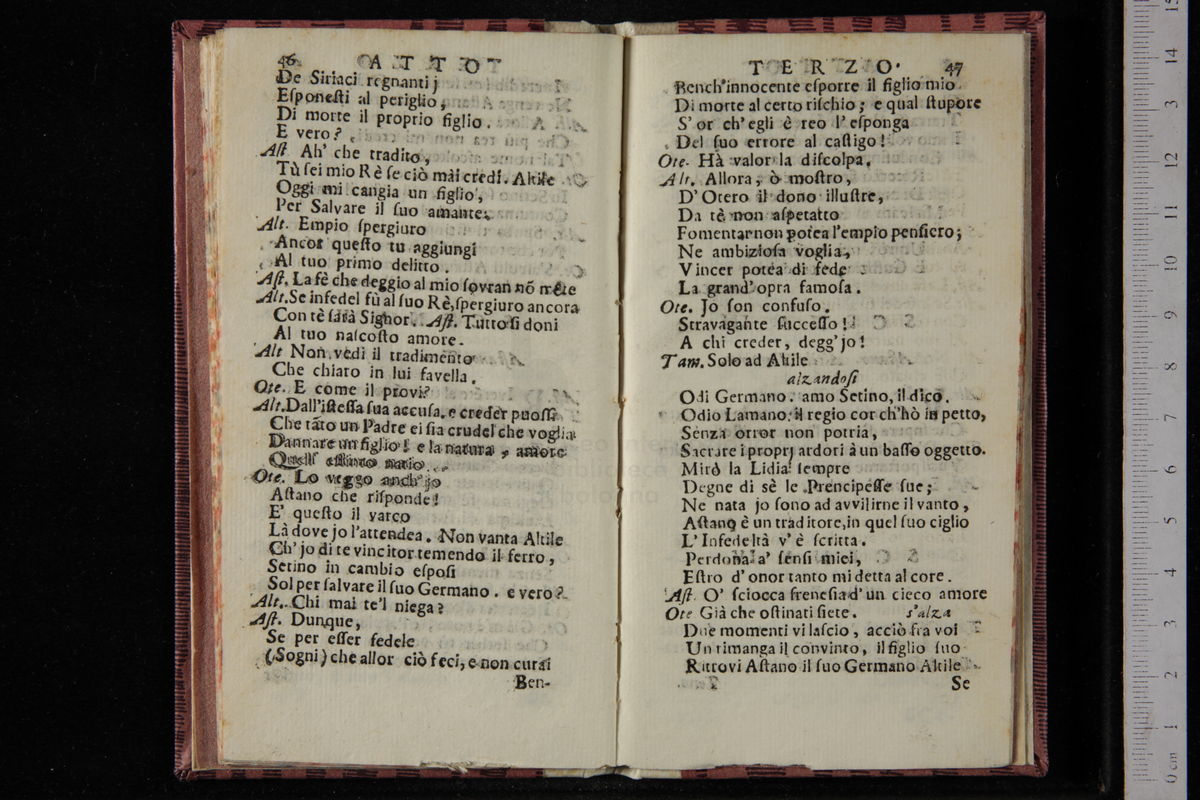 46 ATTO
De Siriaci regnanti;
Eſponeſti al periglio,
Di morte il proprio figlio.
E vero?
Aſt. Ah' che tradito,
Tù ſei mio Rè ſe ciò mài credi. Altile
Oggi mi cangia un figlio,
Per Salvare il ſuo amante.
Alt. Empio ſpergiuro
Ancor queſto tu aggiungi
Al tuo primo delitto.
Aſt. La fè che deggio al mio ſovran nō mēte
Alt. Se infedel fù al ſuo Rè, ſpergiuro ancora
Con tè ſarà Signor. Aſt. Tutto ſi doni
Al tuo naſcoſto amore.
Alt Non vedi il tradimento
Che chiaro in lui favella.
Ote. E come il provi?
Alt. Dall'iſteſſa ſua accuſa. e creder puoſſi
Che tāto un Padre ei ſia crudel che voglia
Dannare un figlio! e la natura, amore
natio.
Ote. Lo veggo anch'jo
Aſtano che riſponde!
E' queſto il varco
Là dove jo l'attendea. Non vanta Altile
Ch' jo di te vincitor temendo il ferro,
Setino in cambio eſpoſi
Sol per ſalvare il ſuo Germano. e vero?
Alt. Chi mai te'l niega?
Aſt. Dunque,
Se per eſſer fedele
(Sogni) che allor ciò feci, e non curai
Ben-
TERZO. 47
Bench'innocente eſporre il figlio mio
Di morte al certo riſchio; e qual ſtupore
S' or ch'egli è reo l'eſponga
Del ſuo errore al caſtigo!
Ote. Hà valor la diſcolpa.
Alt. Allora, ò moſtro,
D' Otero il dono illuſtre,
Da tè non aſpetatto
Fomentar non potea l'empio penſiero;
Ne ambizioſa voglia,
Vincer potea di fede
La grand' opra famoſa.
Ote. Jo ſon confuſo.
Stravagante ſucceſſo!
A chi creder, degg'jo!
Tam. Solo ad Altile
alzandoſi
Odi Germano. amo Setino, il dico.
Odio Lamano: il regio cor ch'hò in petto,
Senza orror non potria,
Sacrare i proprj ardori à un baſſo oggetto.
Mirò la Lidia ſempre
Degne di sè le Prencipeſſe ſue;
Ne nata jo ſono ad avvilirne il vanto,
Aſtano è un traditore, in quel ſuo ciglio
L' Infedeltà v' è ſcritta.
Perdona a' ſenſi miei,
Eſtro d' onor tanto mi detta al core.
Aſt. O' ſciocca freneſia d' un cieco amore
Ote Già che oſtinati ſiete. s'alza
Due momenti vi laſcio, acciò fra voi
Un rimanga il convinto, il figlio ſuo
Ritrovi Aſtano il ſuo Germano Altile
Se